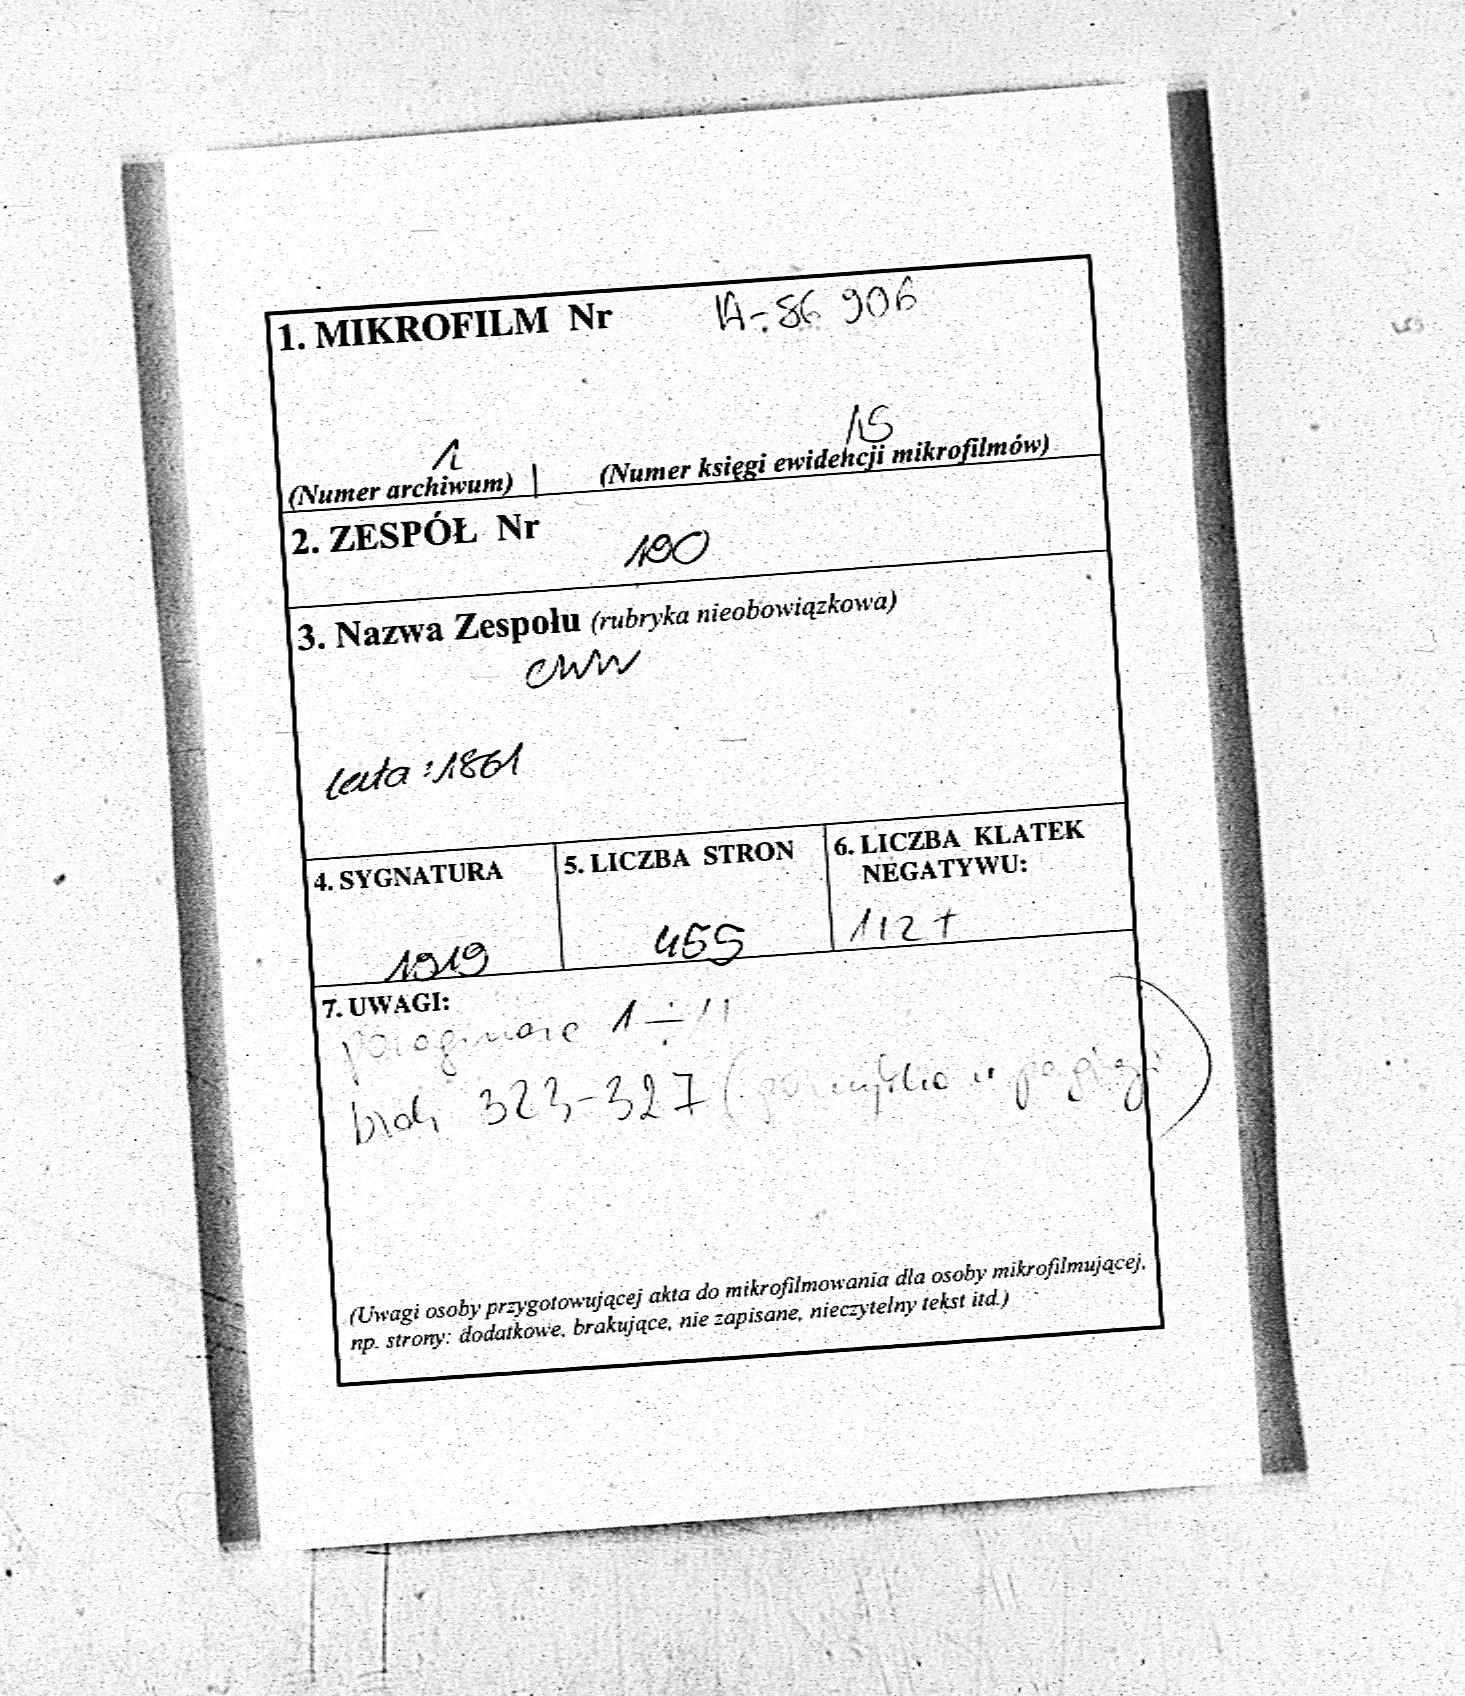 1. MIKROFILM Nr
A-86 906
1
15
(Numer archiwum)
(Numer księgi ewidencji mikrofilmów)
2. ZESPÓŁ Nr
190
3. Nazwa Zespołu (rubryka nieobowiązkowa)
CWW
lata: 1861
4. SYGNATURA
5. LICZBA STRON
6. LICZBA KLATEK
NEGATYWU:
1919
455
112+
7. UWAGI:
1 ÷ 11
brak 323-327 (pomyłka w paginacji)
(Uwagi osoby przygotowującej akta do mikrofilmowania dla osoby mikrofilmującej,
np. strony: dodatkowe, brakujące, nie zapisane, nieczytelny tekst itd.)